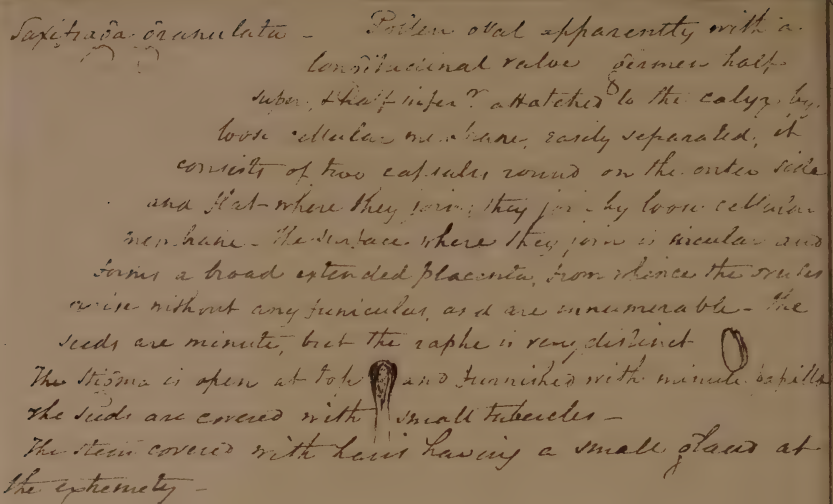 Saxifraga granulata - Pollen oval apparently with a
longitudinal valve germen half
super. & half infer.r attatched to the calyx by
loose cellular membrane, easily separated, it
consists of two capsules round on the outer side
and flat where they join; they join by loose cellular
membrane - The surface where they join is circular and
forms a broad extended placenta, from whence the ovules
arise without any funiculus, and are innumerable - The
seeds are minute, but the raphe is very distinct
The stigma is open at top and furnished with minute papillæ
The seeds are covered with small tubercles -
The stem covered with hairs having a small gland at
the extremety -